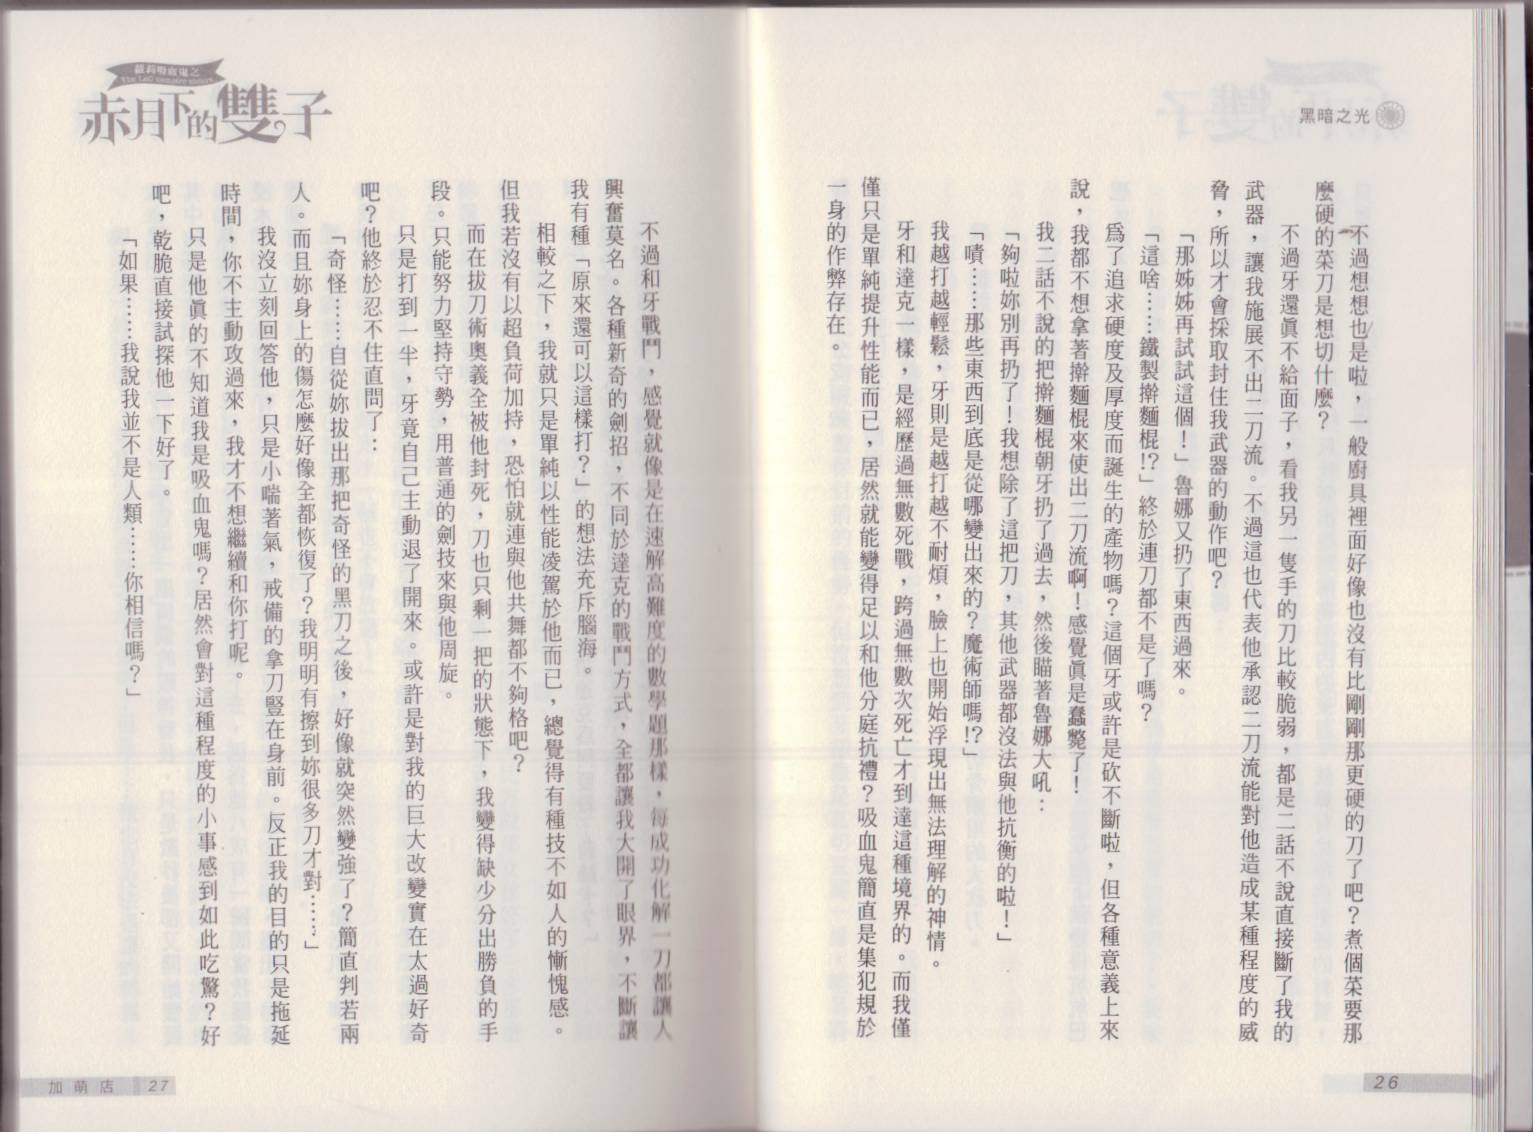 黑暗之光
不過想想也是啦，一般廚具裡面好像也沒有比剛剛那更硬的刀了吧？煮個菜要那
麼硬的菜刀是想切什麼？
不過牙還真不給面子，看我另一隻手的刀比較脆弱，都是二話不說直接斷了我的
武器，讓我施展不出二刀流。不過這也代表他承認二刀流能對他造成某種程度的威
脅，所以才會採取封住我武器的動作吧？
「那姊姊再試試這個！」魯娜又扔了東西過來。
「這啥……鐵製擀麵棍!?」終於連刀都不是了嗎？
為了追求硬度及厚度而誕生的產物嗎？這個牙或許是砍不斷啦，但各種意義上來
說，我都不想拿著擀麵棍來使出二刀流啊！感覺真是蠢斃了！
我二話不說的把擀麵棍朝牙扔了過去，然後瞄著魯娜大吼：
「夠啦妳別再扔了！我想除了這把刀，其他武器都沒法與他抗衡的啦！」
「嘖……那些東西到底是從哪變出來的？魔術師嗎!?」
我越打越輕鬆，牙則是越打越不耐煩，臉上也開始浮現出無法理解的神情。
牙和達克一樣，是經歷過無數死戰，跨過無數次死亡才到達這種境界的。而我僅
僅只是單純提升性能而已，居然就能變得足以和他分庭抗禮？吸血鬼簡直是集犯規於
一身的作弊存在。
26
蘿莉吸血鬼之
赤月下的雙子
不過和牙戰鬥，感覺就像是在速解高難度的數學題那樣，每成功化解一刀都讓人
興奮莫名。各種新奇的劍招，不同於達克的戰鬥方式，全都讓我大開了眼界，不斷讓
我有種「原來還可以這樣打？」的想法充斥腦海。
相較之下，我就只是單純以性能凌駕於他而已，總覺得有種技不如人的慚愧感。
但我若沒有以超負荷加持，恐怕就連與他共舞都不夠格吧？
而在拔刀術奧義全被他封死，刀也只剩一把的狀態下，我變得缺少分出勝負的手
段。只能努力堅持守勢，用普通的劍技來與他周旋。
只是打到一半，牙竟自己主動退了開來。或許是對我的巨大改變實在太過好奇
吧？他終於忍不住直問了：
「奇怪……自從妳拔出那把奇怪的黑刀之後，好像就突然變強了？簡直判若兩
人。而且妳身上的傷怎麼好像全都恢復了？我明明有擦到妳很多刀才對……」
我沒立刻回答他，只是小喘著氣，戒備的拿刀豎在身前。反正我的目的只是拖延
時間，你不主動攻過來，我才不想繼續和你打呢。
只是他真的不知道我是吸血鬼嗎？居然會對這種程度的小事感到如此吃驚？好
吧，乾脆直接試探他一下好了。
「如果……我說我並不是人類……你相信嗎？」
加萌店 27